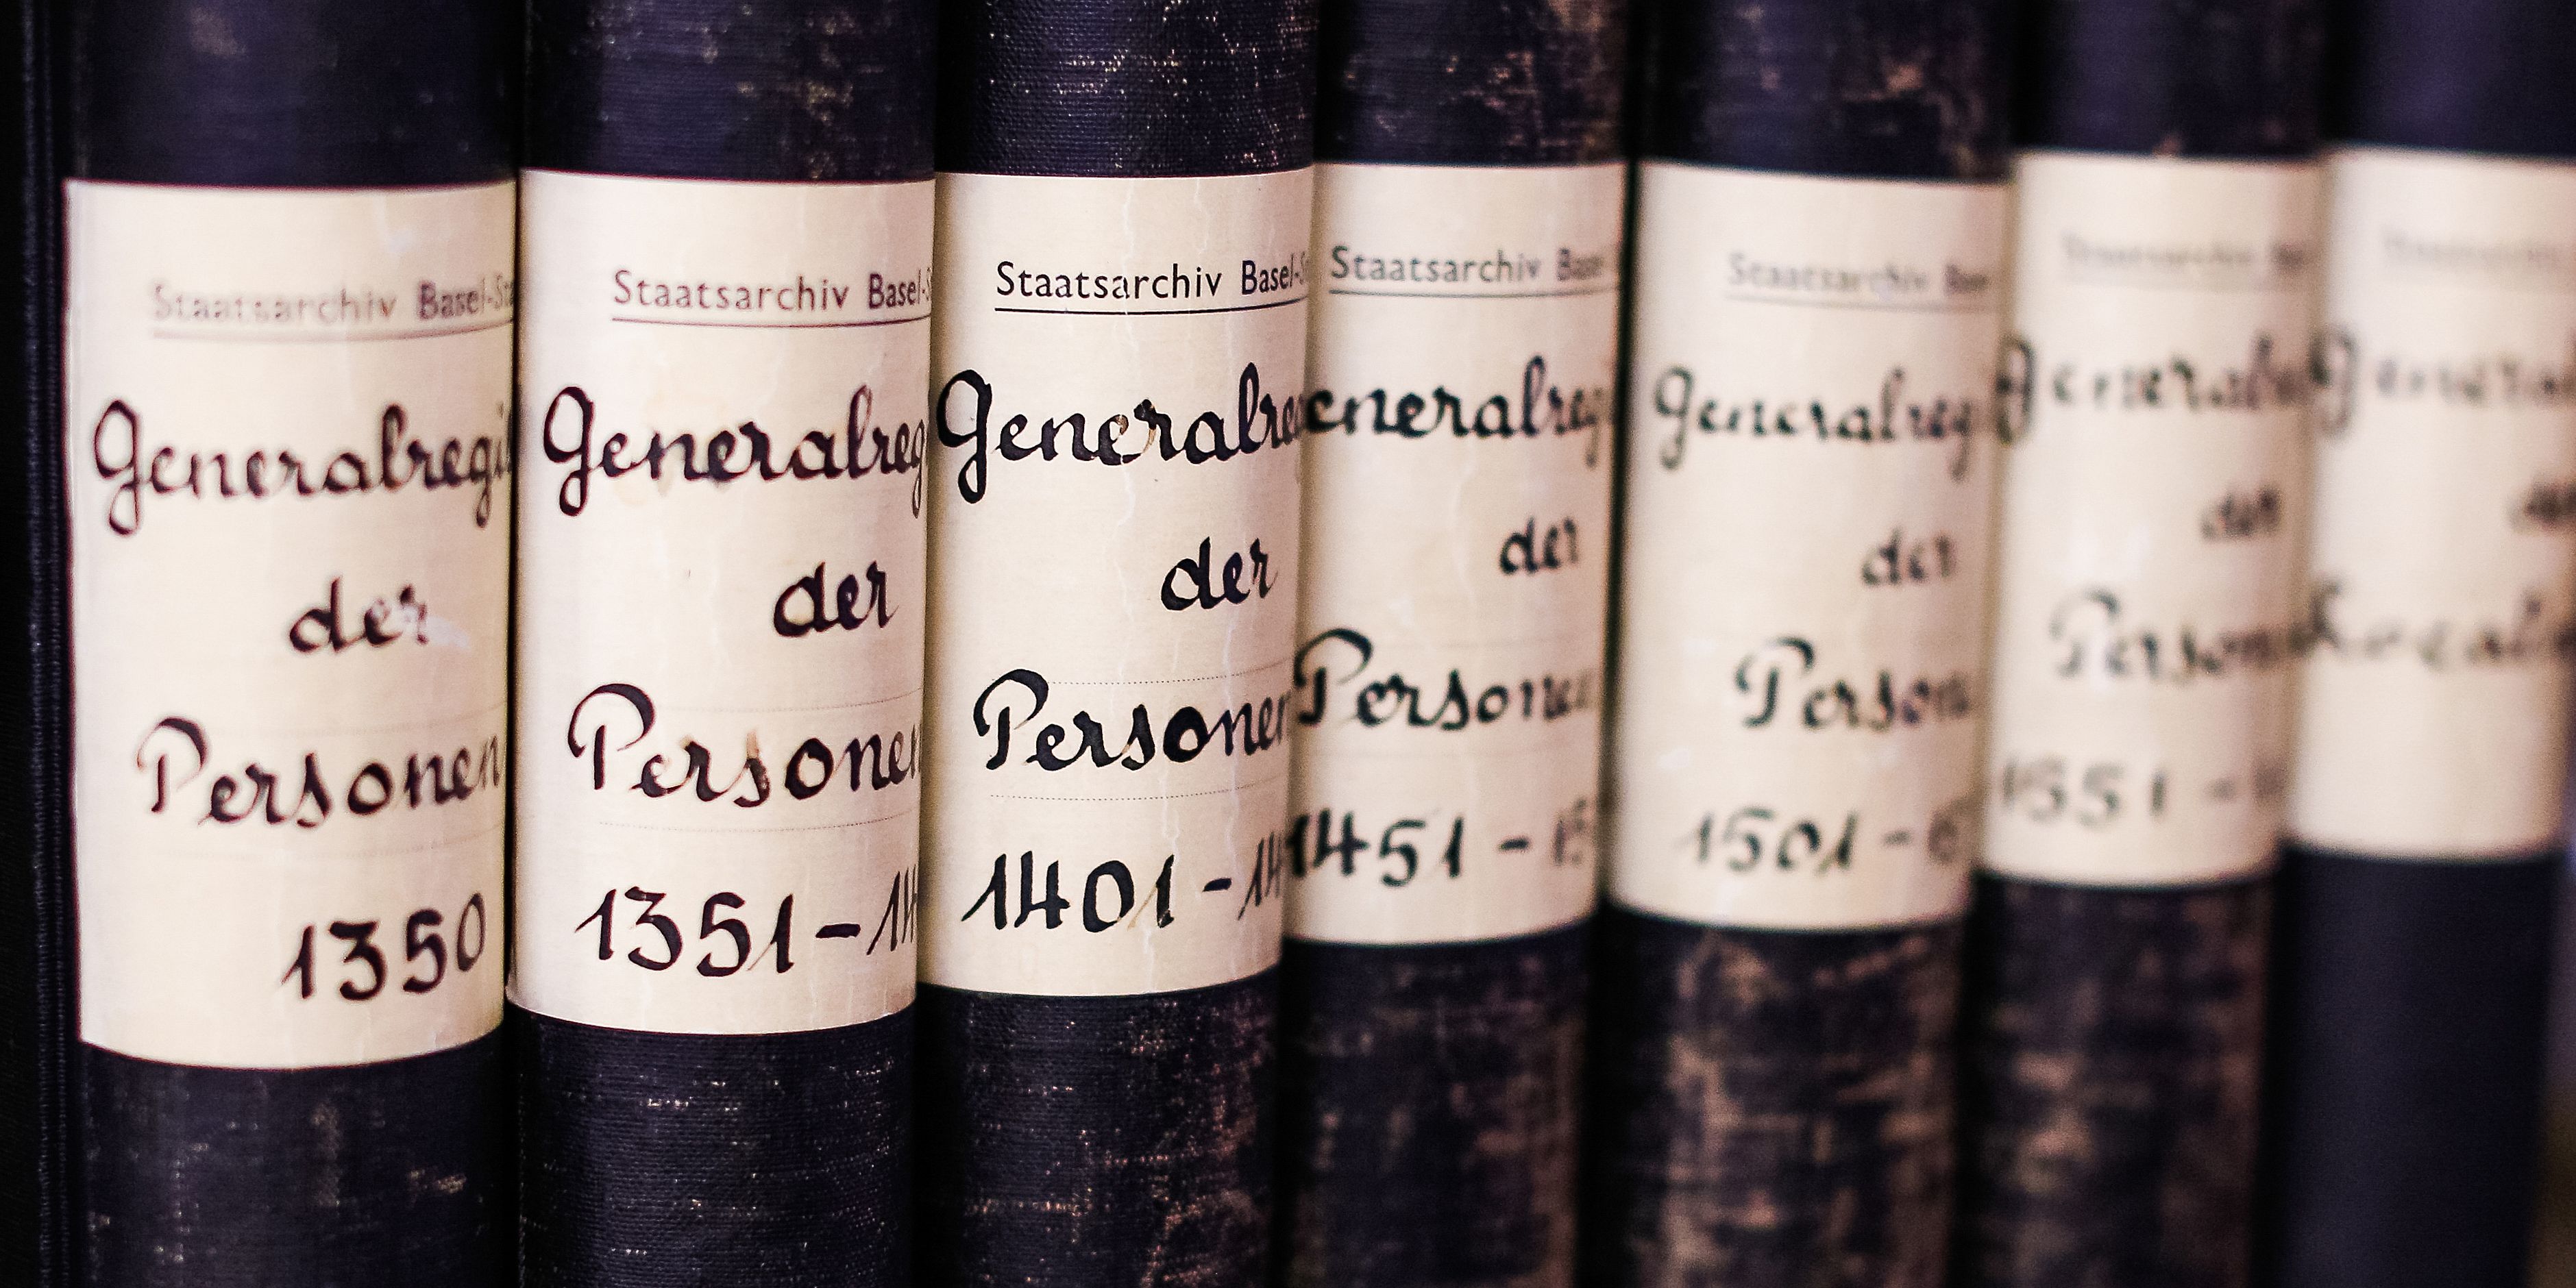 Staatsarchiv Basel-St
Generalregi
der
Personen
1350
Staatsarchiv Basel-S
Generalreg
der
Personen
1351-14
Staatsarchiv Basel-S
Generalreg
der
Personen
1401-14
Staatsarchiv Basel
eneralreg
der
Personen
1451-15
Staatsarchiv Basel
Generalreg
der
Person
1501-
Staatsarchiv
General
der
Person
1551-
General